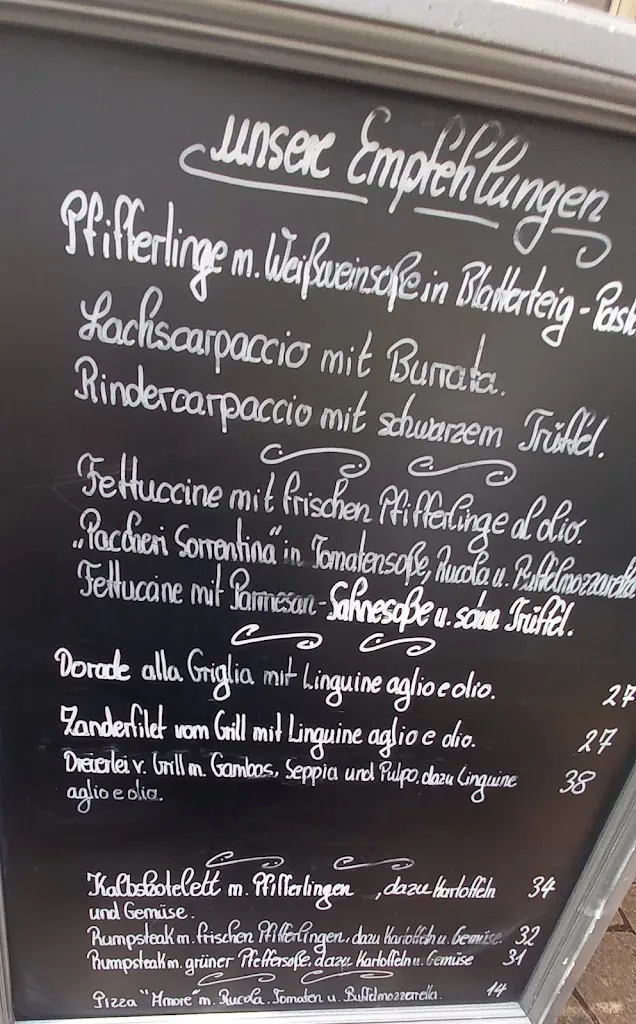 unsere Empfehlungen
Pfifferlinge m. Weißweinsoße in Blätterteig-Past
Lachscarpaccio mit Burrata.
Rindercarpaccio mit schwarzem Trüffel.
Fettuccine mit frischen Pfifferlinge al olio.
„Paccheri Sorrentina" in Tomatensoße, Rucola u. Büffelmozzarella
Fettuccine mit Parmesan-Sahnesoße u. schw. Trüffel.
Dorade alla Griglia mit Linguine aglio e olio. 27
Zanderfilet vom Grill mit Linguine aglio e olio. 27
Dreierlei v. Grill m. Gambas, Seppia und Pulpo, dazu Linguine 38
aglio e olio.
Kalbskotelett m. Pfifferlingen, dazu Kartoffeln 34
und Gemüse.
Rumpsteak m. frischen Pfifferlingen, dazu Kartoffeln u. Gemüse. 32
Rumpsteak m. grüner Pfeffersoße, dazu Kartoffeln u. Gemüse 31
Pizza "Amore" m. Rucola, Tomaten u. Büffelmozzarella. 14